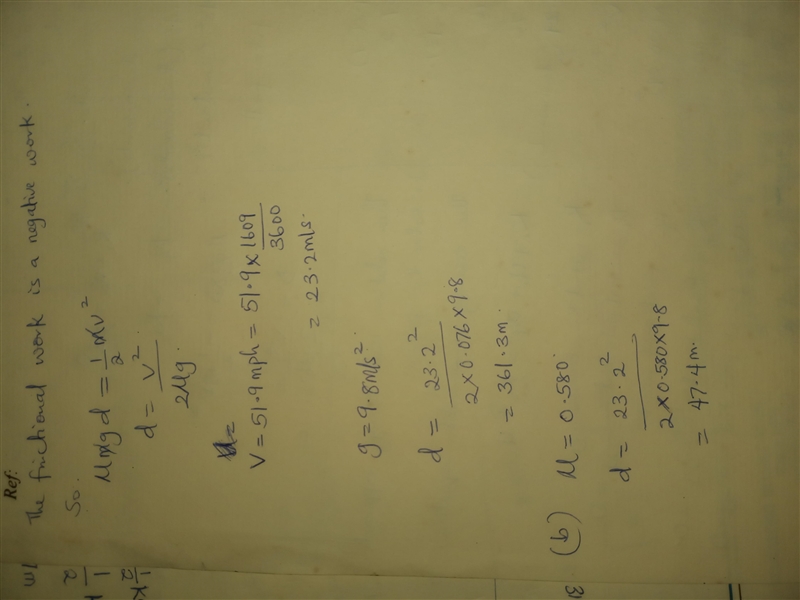 Ref:
The frictional work is a negative work.
So.
μmgd = 1/2 mv²
d = v²/2μg
V = 51.9 mph = 51.9 × 1609/3600
= 23.2 m/s.
g = 9.8 m/s².
d = 23.2²/2×0.076×9.8
= 361.3m.
(b) μ = 0.580
d = 23.2²/2×0.580×9.8
= 47.4m.